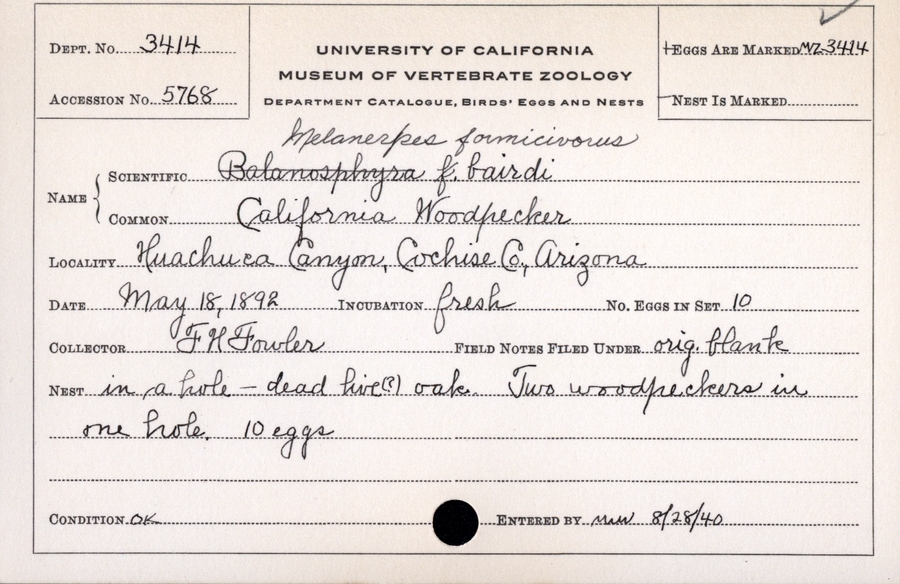 DEPT. No. 3414
UNIVERSITY OF CALIFORNIA
MUSEUM OF VERTEBRATE ZOOLOGY
DEPARTMENT CATALOGUE, BIRDS' EGGS AND NESTS
EGGS ARE MARKED MVZ 3414
ACCESSION No. 5768
NEST IS MARKED
Melanerpes formicivorus
NAME
SCIENTIFIC Balanosphyra f. bairdi
COMMON California Woodpecker
LOCALITY Huachuca Canyon, Cochise Co., Arizona
DATE May 18, 1892 INCUBATION fresh No. EGGS IN SET 10
COLLECTOR F H Fowler FIELD NOTES FILED UNDER orig. blank
NEST in a hole — dead live(?) oak. Two woodpeckers in
one hole. 10 eggs
CONDITION OK ENTERED BY 8/28/40